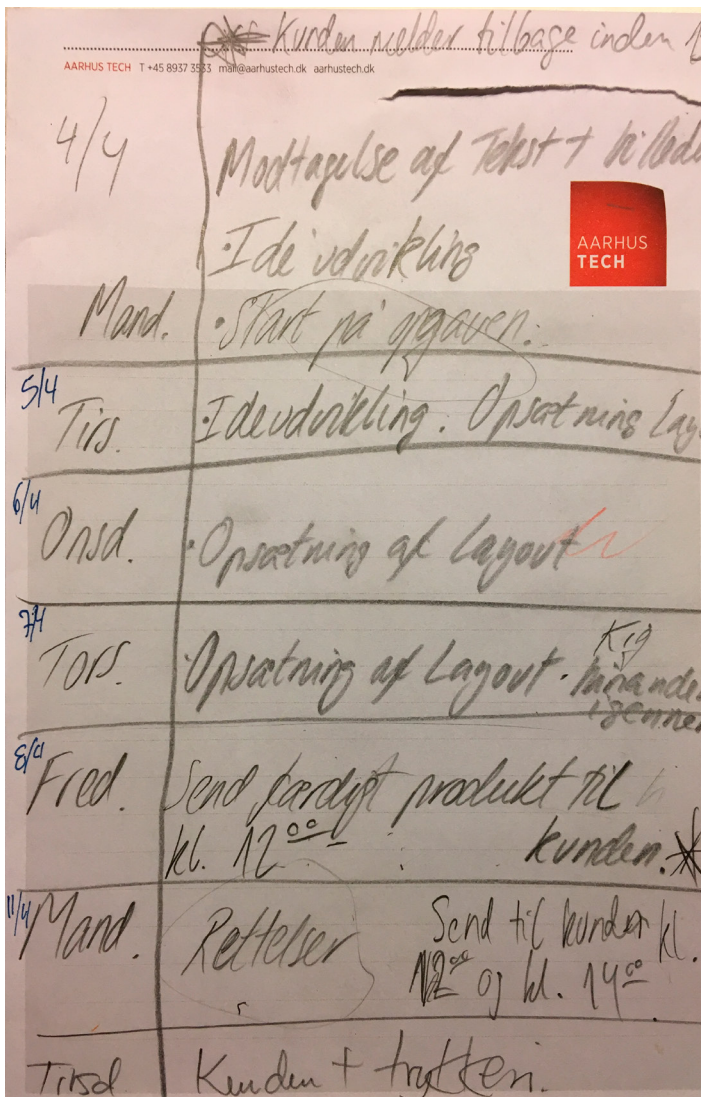 * Kunden melder tilbage inden
AARHUS TECH T +45 8937 3533 mail@aarhustech.dk aarhustech.dk
4/4
Modtagelse af Tekst + billed
· Ide udvikling
AARHUS
TECH
Mand. · Start på opgaven.
5/4
Tirs. · Ideudvikling. Opsætning Lay
6/4
Onsd. · Opsætning af Layout
7/4
Tors. · Opsætning af Layout. Kig
hinanden
igennem
8/4
Fred. Send færdigt produkt til
kl. 12⁰⁰ kunden. *
11/4
Mand. Rettelser Send til kunder kl.
12⁰⁰ og kl. 14⁰⁰
Tirsd Kunden + trykkeri.